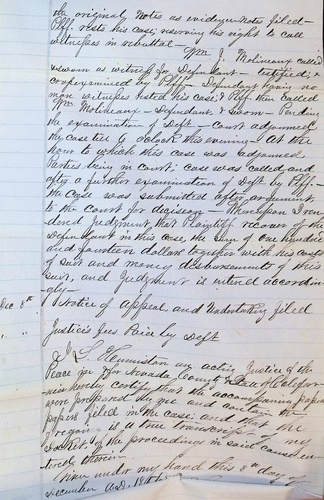 the original Notes as evidence Notes filed
Plff. rests his case, reserving his right to call
witnesses in rebuttal - Wm J. Molineaux called
& sworn as witness for Defendant - testified, &
crossexamined by Plff - Defendant having no
more witnesses rested his case, & Plff then called
Wm Molineaux - Defendant & sworn - Pending
the examination of Deft - Court adjourned
the case till 7 oclock this evening - At the
hour to which this case was adjourned
Parties being in Court; case was called and
after a further examination of Deft by Plff -
the case was submitted after argument
to the Court for decision - Thereupon I ren
dered Judgment that Plaintiff recover of the
Defendant in this case the sum of One hundred
and fourteen dollars together with his costs
of suit and money disbursements of this
suit, and Judgment is intered accordin
gly -
Dec 8th Notice of Appeal, and Undertaking filed
Justices fees Paid by Deft
I, S. an acting Justice of the
Peace in & for Nevada County State of Califor
nia hereby certify that the accompanying papers
were prepared by me and contain the
papers filed in the case; and that the
foregoing is a true transcript of my
Docket, of the proceedings in said cause en
tered therein
Given under my hand this 8th day of
December A.D. 186